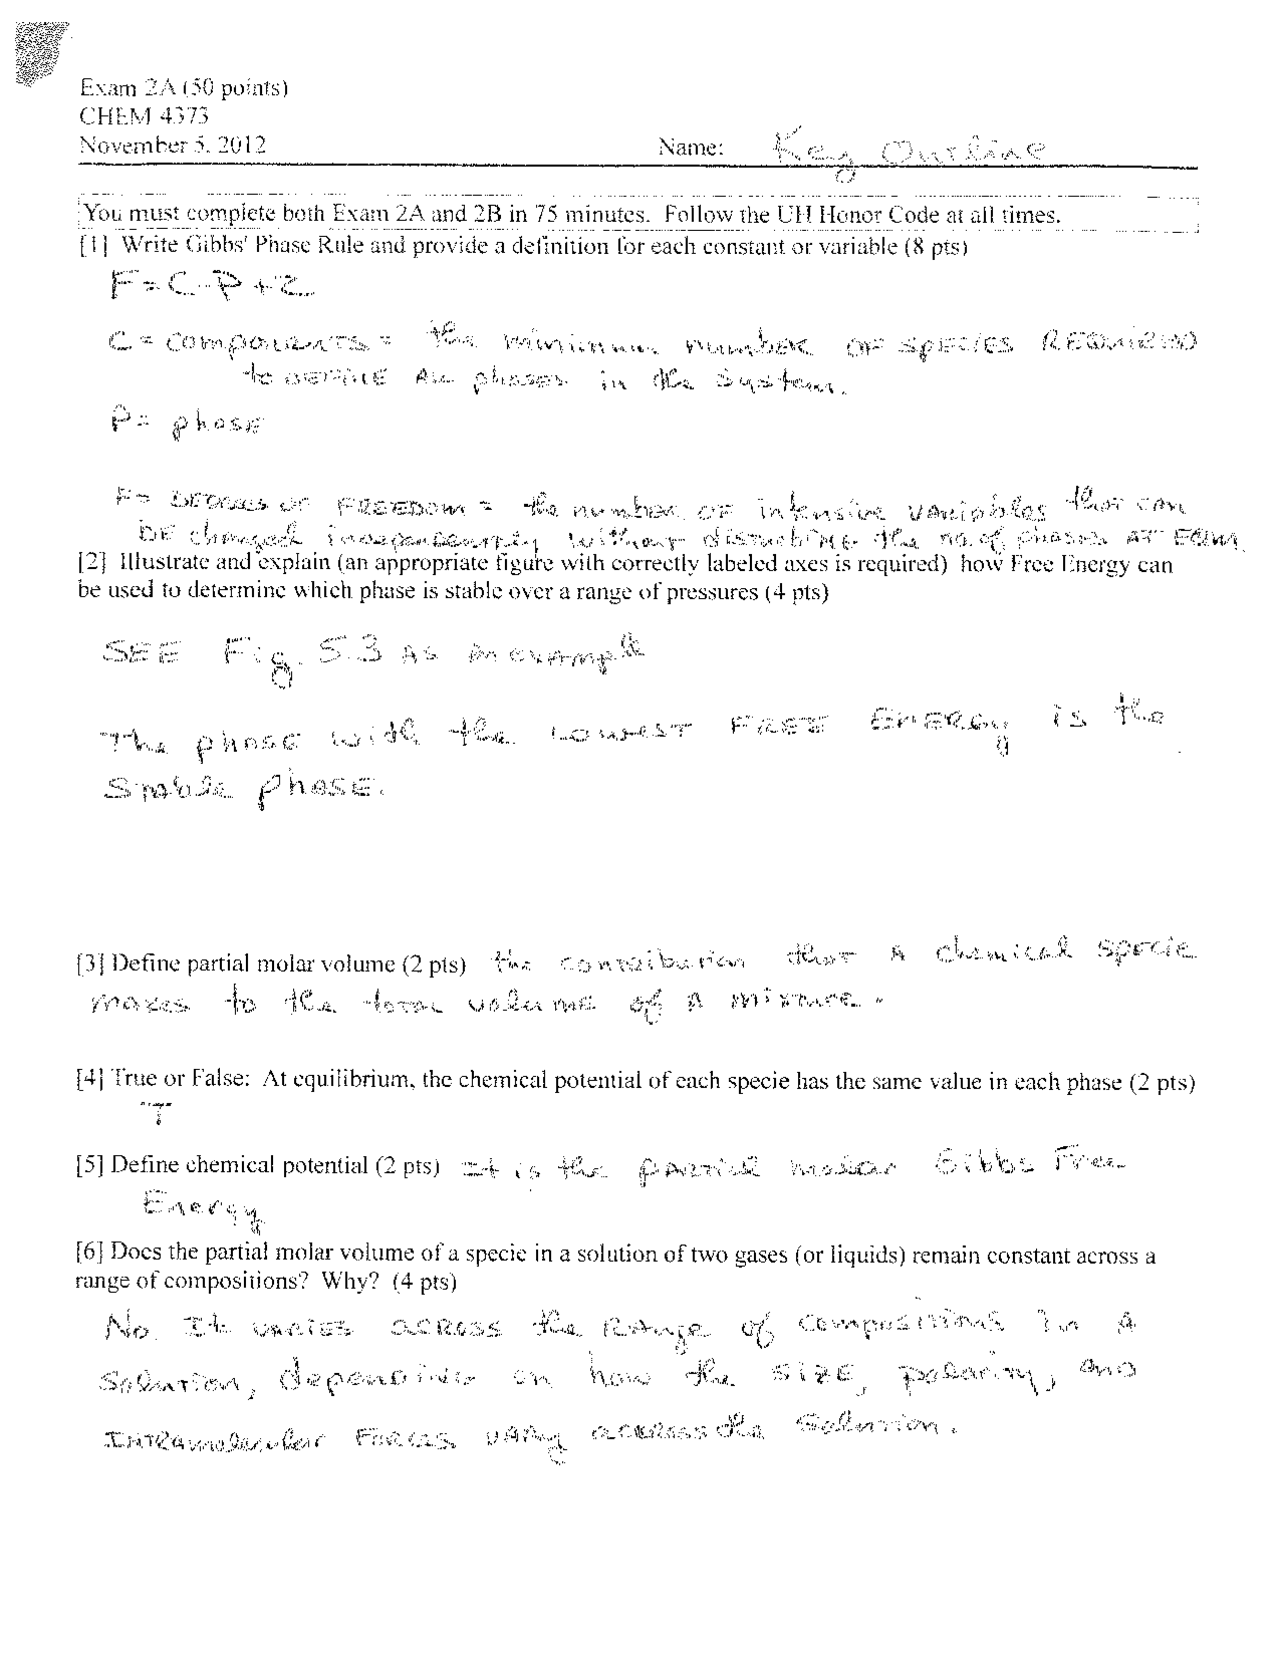 Exam 2A (50 points)
CHEM 4373
November 5, 2012 Name: Key Outline
You must complete both Exam 2A and 2B in 75 minutes. Follow the UH Honor Code at all times.
[1] Write Gibbs' Phase Rule and provide a definition for each constant or variable (8 pts)
F = C - P + 2
C = components = the minimum number OF SPECIES REQUIRED
to DEFINE ALL phases in the system.
P = phase
F = DEGREES OF FREEDOM = the number OF intensive VARIABLES that can
BE changed independently without disturbing the no. of phases AT EQM.
[2] Illustrate and explain (an appropriate figure with correctly labeled axes is required) how Free Energy can
be used to determine which phase is stable over a range of pressures (4 pts)
SEE Fig. 5.3 AS an example
The phase with the LOWEST FREE ENERGY is the
Stable phase.
[3] Define partial molar volume (2 pts) the contribution that A chemical specie
makes to the total volume of A mixture.
[4] True or False: At equilibrium, the chemical potential of each specie has the same value in each phase (2 pts)
T
[5] Define chemical potential (2 pts) It is the partial molar Gibbs Free
Energy
[6] Does the partial molar volume of a specie in a solution of two gases (or liquids) remain constant across a
range of compositions? Why? (4 pts)
No. It varies across the Range of compositions in A
Solution, depending on how the SIZE, polarity, and
INTRAmolecular Forces vary across the Solution.